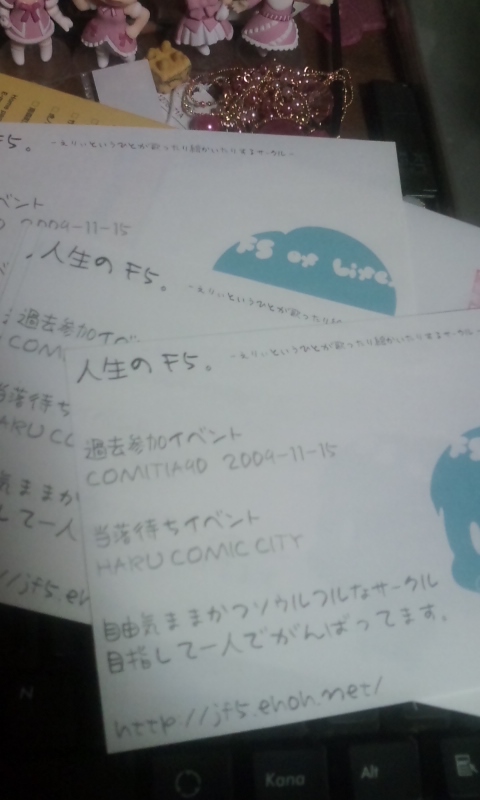 F5。 -えりぃというひとが歌ったり絵かいたりするサークル-
ベント
2009-11-15
F5 of Life.
人生のF5。 -えりぃというひとが歌ったり絵
過去参加イベ
COMI
当落待ち
HARU CC
気ままか
して一人
//jf5.eh
人生のF5。 -えりぃというひとが歌ったり絵かいたりするサークル-
過去参加イベント
COMITIA90 2009-11-15
当落待ちイベント
HARU COMIC CITY
自由気ままかつソウルフルなサークル
目指して一人でがんばってます。
http://jf5.ehoh.net/
N
Kana
Alt